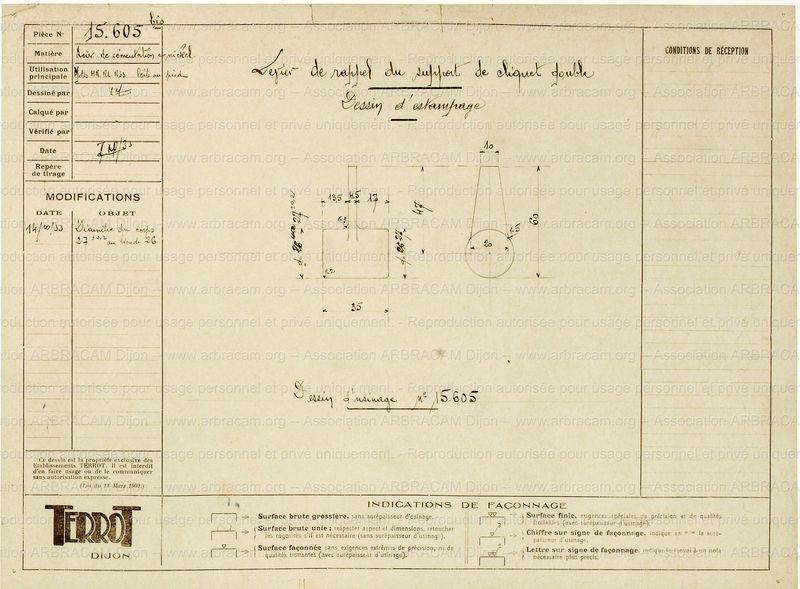 Pièce N° 15.605 bis
Matière Acier de cémentation au nickel
Utilisation
principale Motos
Dessiné par
Calqué par
Vérifié par
Date 7/10/33
Repère
de tirage
MODIFICATIONS
DATE OBJET
14/10/33 Diamètre du corps
27 au lieu de 26
Levier de rappel du support de cliquet double
Dessin d'estampage
CONDITIONS DE RÉCEPTION
10
13,5 4,5 17
47
60
20
35
Dessin d'usinage N° 15.605
Ce dessin est la propriété exclusive des
Etablissements TERROT. Il est interdit
d'en faire usage ou de le communiquer
sans autorisation expresse.
(Loi du 11 Mars 1902.)
TERROT
DIJON
INDICATIONS DE FAÇONNAGE
Surface brute grossière, sans surépaisseur d'usinage.
Surface brute unie ; respecter aspect et dimensions, retoucher
les rugosités s'il est nécessaire (sans surépaisseur d'usinage).
Surface façonnée sans exigences extrêmes de précision, ni de
qualités frottantes (avec surépaisseur d'usinage).
Surface finie, exigences spéciales de précision et de qualités
frottantes (avec surépaisseur d'usinage).
Chiffre sur signe de façonnage, indique en m/m la suré-
paisseur d'usinage.
Lettre sur signe de façonnage, indique le renvoi à un nota
nécessaire plus précis.
www.arbracam.org – Association ARBRACAM Dijon – www.arbracam.org – Association ARBRACAM Dijon
Reproduction autorisée pour usage personnel et privé uniquement.